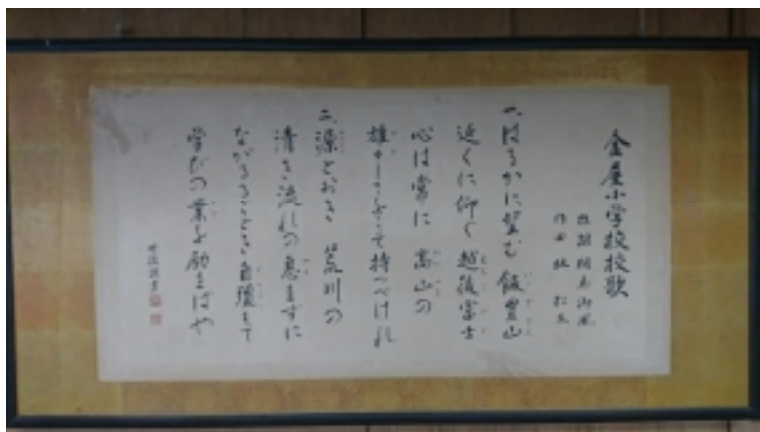 金屋小学校校歌
作詞 相馬御風
作曲
一、はるかに望む 飯豊山
近くに仰ぐ 越後富士
心は常に 高山の
雄々しきをこそ持つべけれ
二、源とおき 荒川の
清き流れの 息まずに
ながるるごとき 自彊もて
学びの業を励まばや